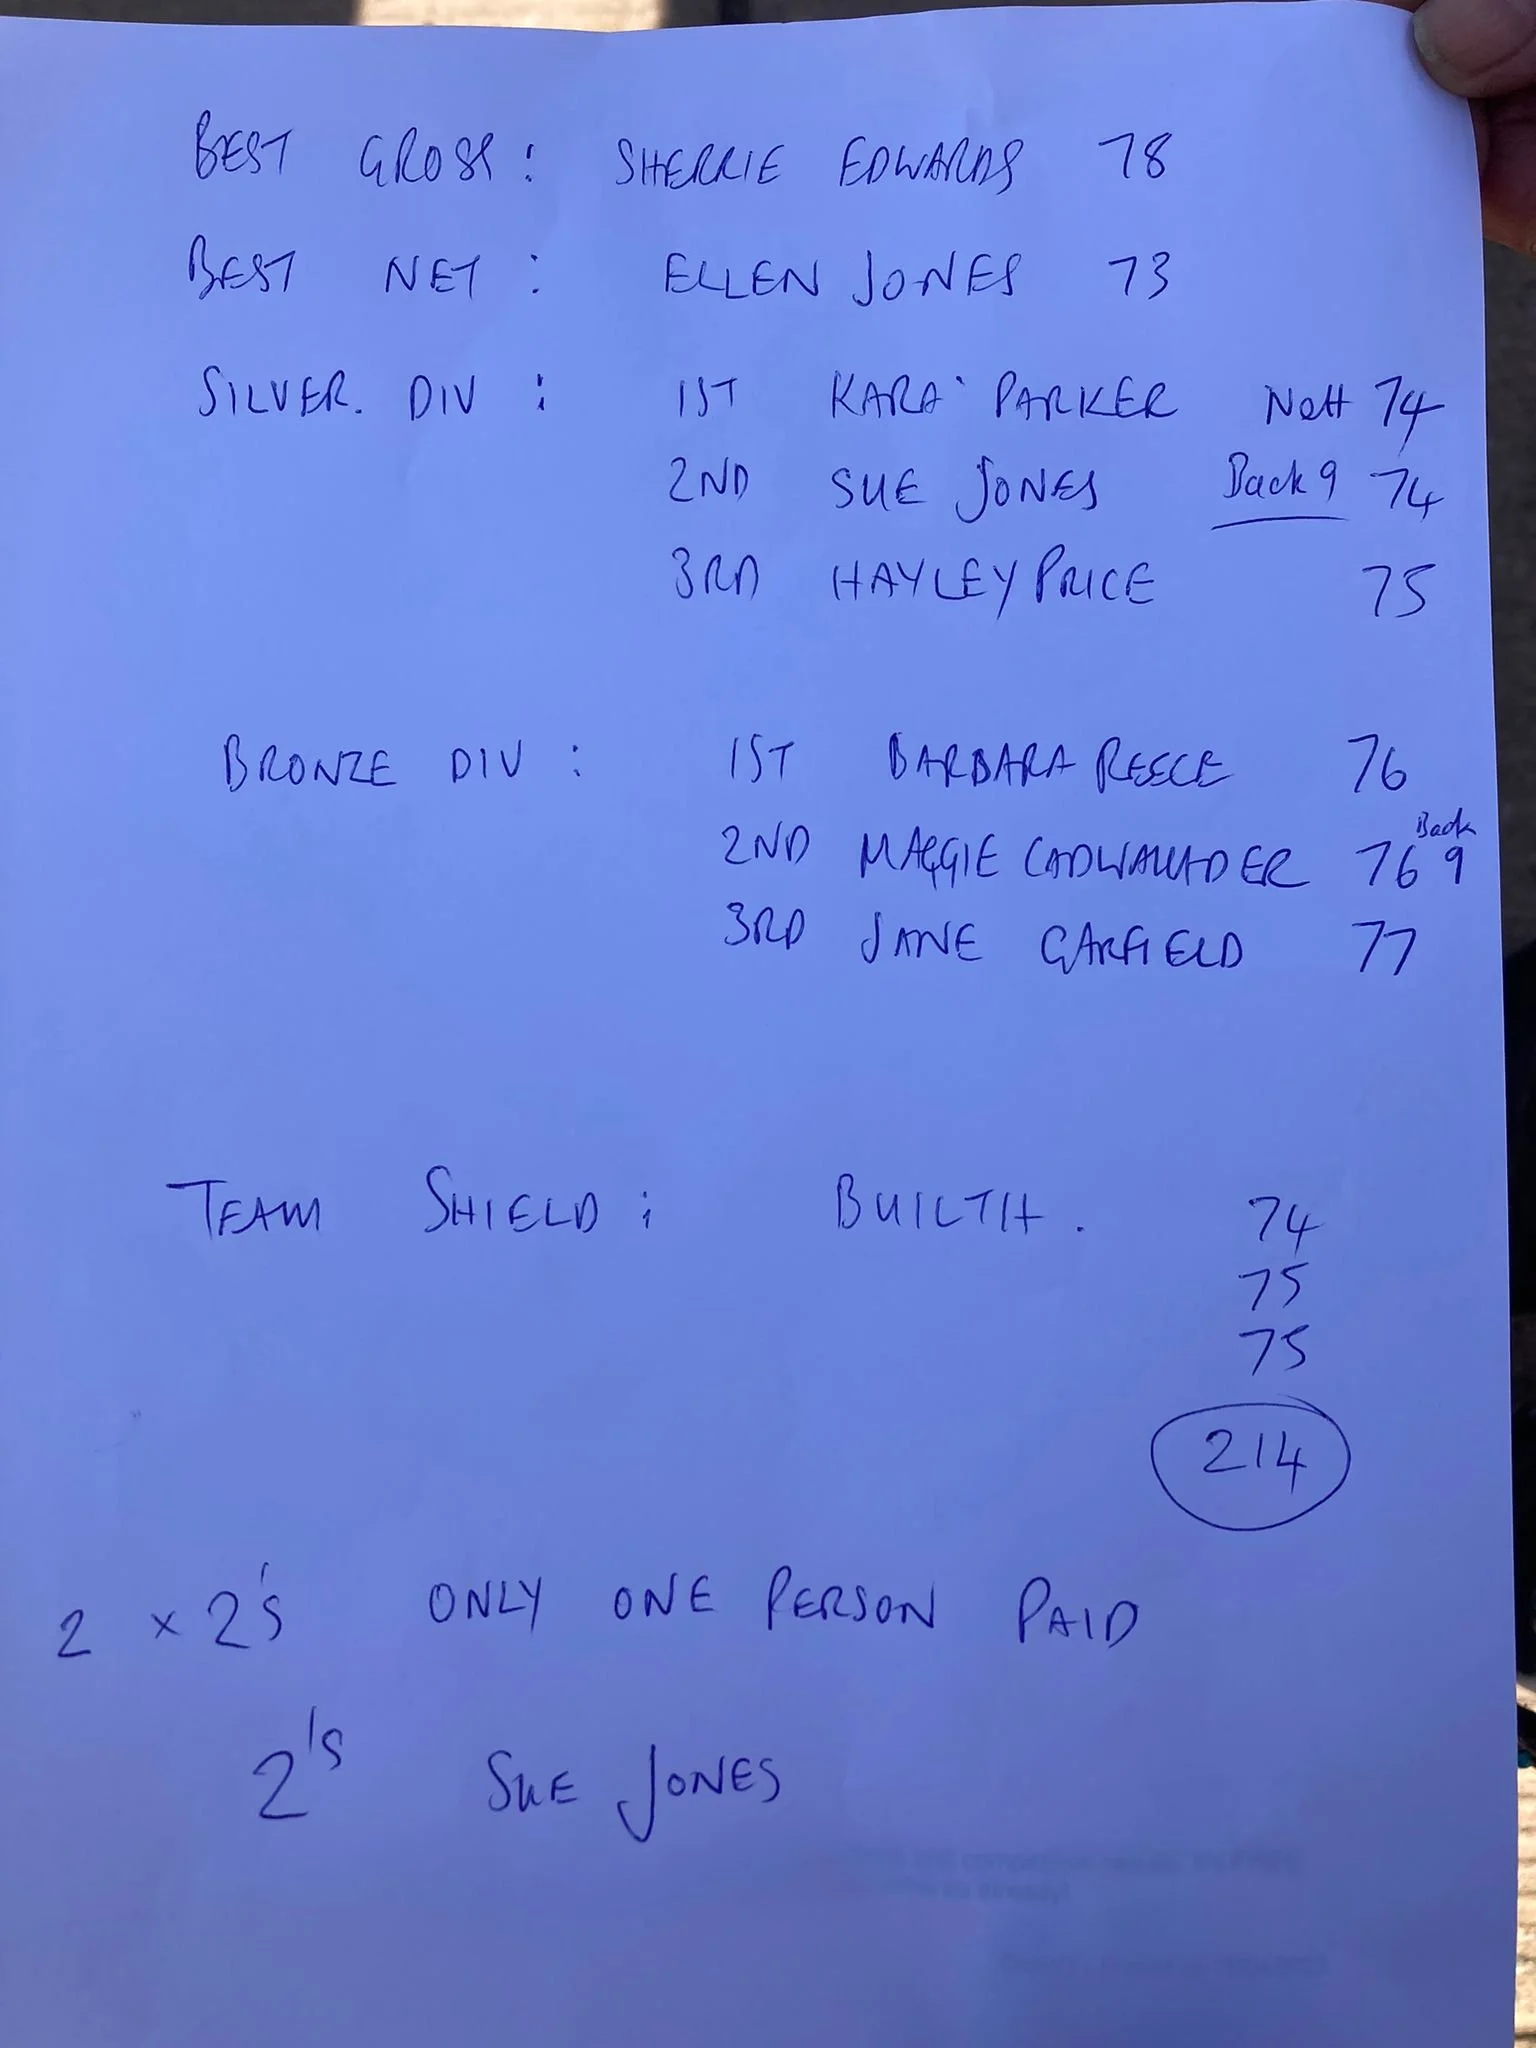 BEST GROSS: SHERRIE EDWARDS 78
BEST NET: ELLEN JONES 73
SILVER. DIV: 1ST KARA PARKER Nett 74
2ND SUE JONES Back 9 74
3RD HAYLEY PRICE 75
BRONZE DIV: 1ST BARBARA REECE 76
2ND MAGGIE CADWALLADER 76 Back 9
3RD JANE GARFIELD 77
TEAM SHIELD: BUILTH. 74
75
75
214
2 x 2's ONLY ONE PERSON PAID
2's SUE JONES